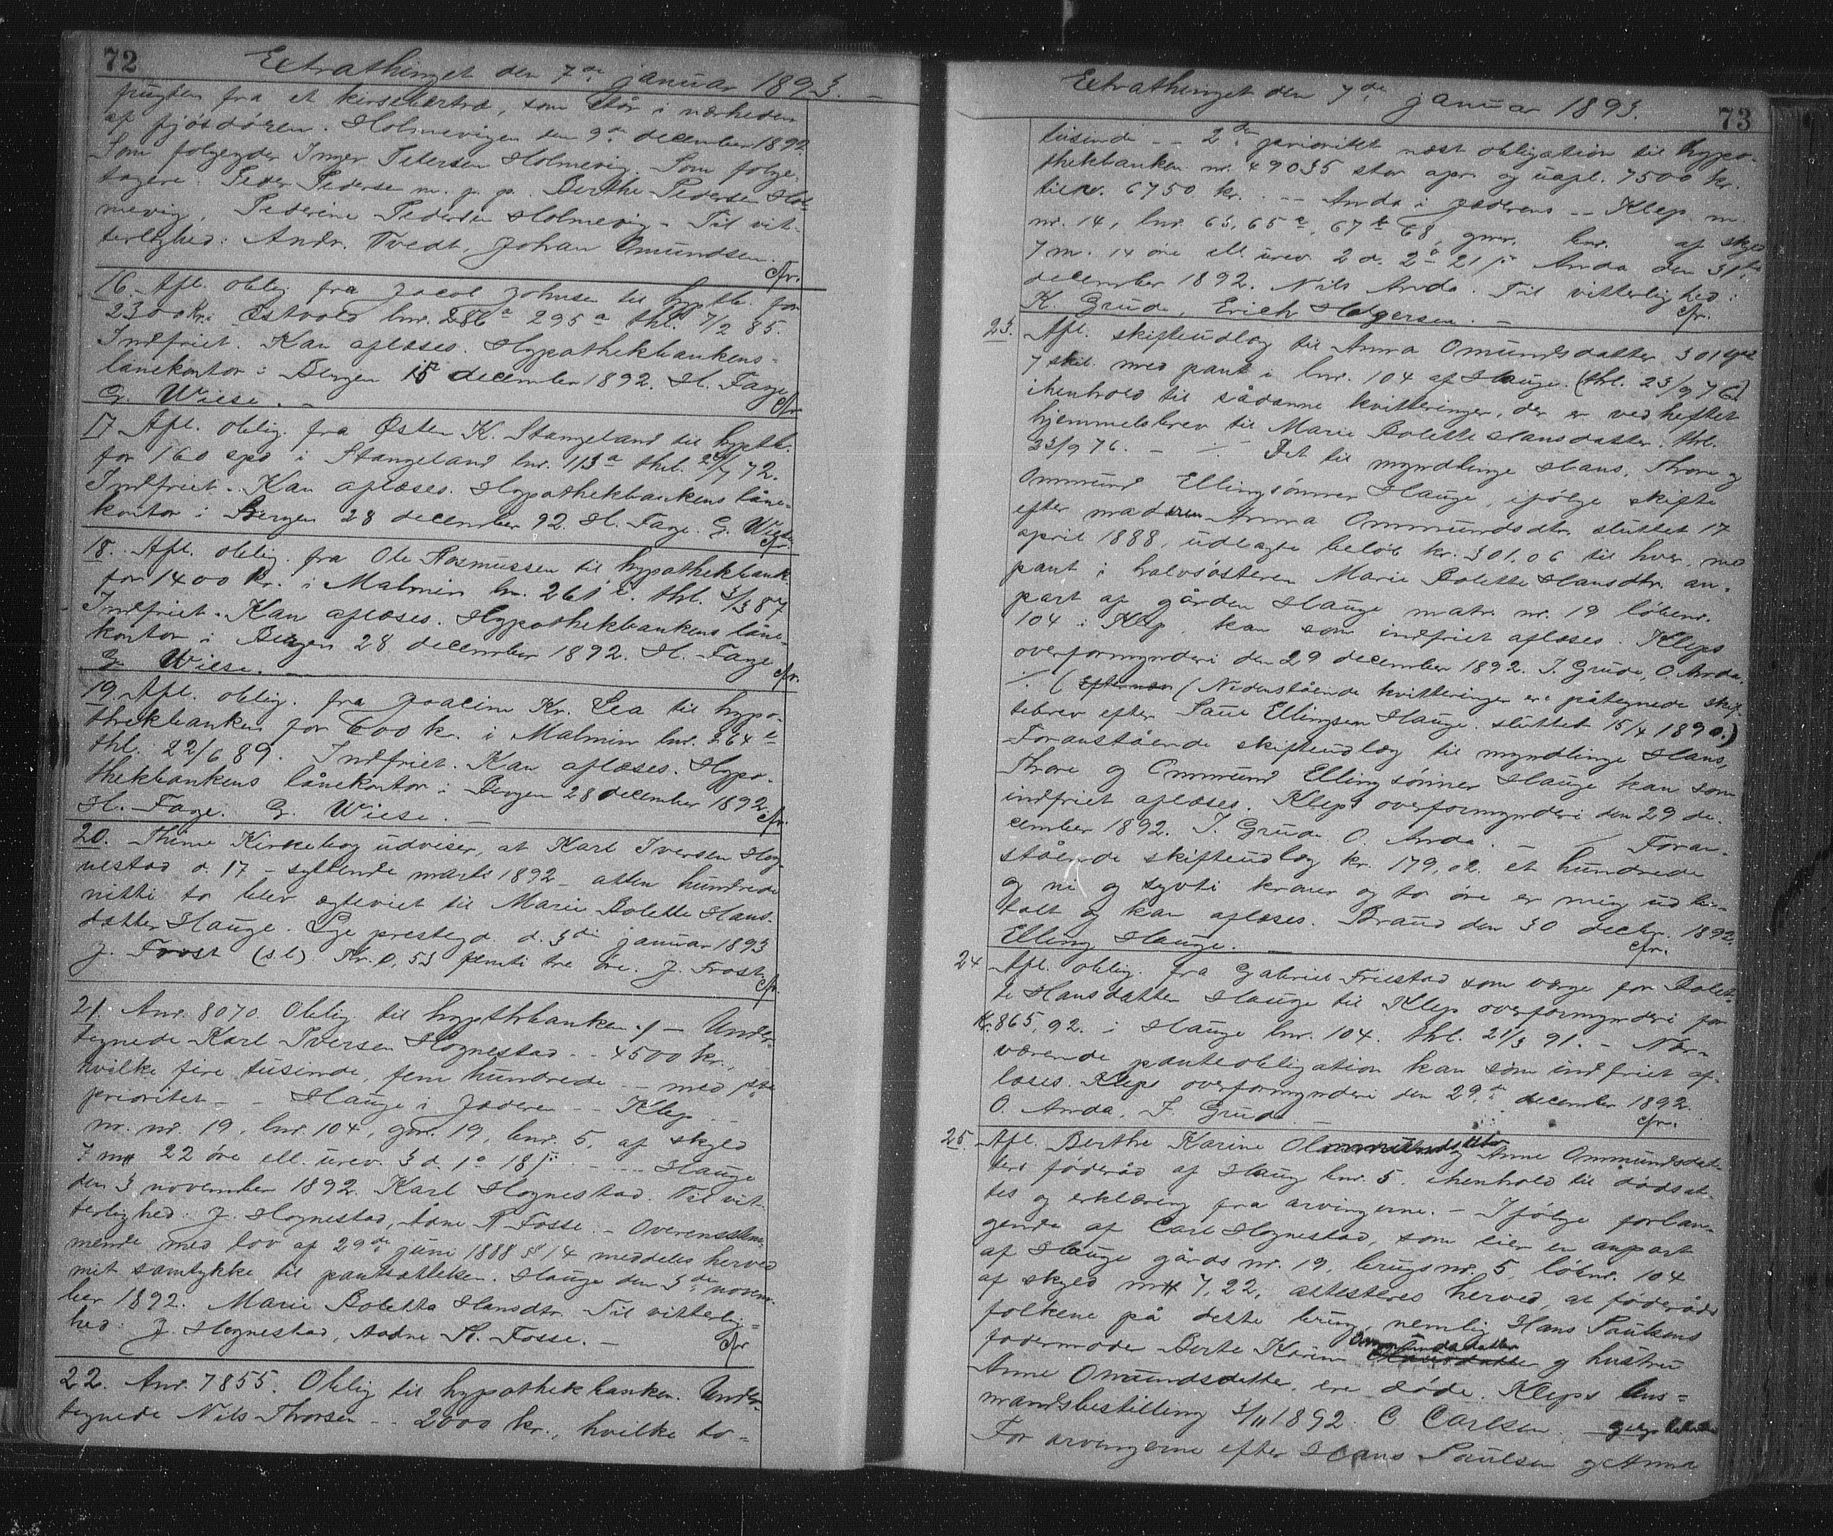 72
Extrathinget den 7de januar 1893.
frugten fra et kirsebærtræ, som står i nærheden
af fjøsdøren. Holmevigen den 9de december 1892.
Som folgeyder Inger Petersen Holmevig. Som folge-
tagere: Peder Pedersen m. p. p. Berthe Pedersen Hol-
mevig, Pederine Pedersen Holmevig. Til vit-
terlighed: Andr. Tvedt, Johan Omundsen.
cfr.
16. Afl. oblig. fra Jacob Johnsen til hypthb. for
2300 kr. i Østvold lnr. 286a 295a thl. 7/2 85.
Indfriet. Kan aflæses. Hypothekbankens
lånekontor i Bergen 15 december 1892. H. Fage
G. Wiese. cfr.
17. Afl. oblig. fra Østen K. Stangeland til hypthb.
for 160 spd i Stangeland lnr. 113a thl. /7 72.
Indfriet. Kan aflæses. Hypothekbankens låne-
kontor i Bergen 28 december 92. H. Fage. G. Wiese
cfr.
18. Afl. oblig. fra Ole Rasmussen til hypothekbank
for 1400 kr. i Malmin lnr. 261 thl. 3/3 87
Indfriet. Kan aflæses. Hypothekbankens låne-
kontor i Bergen 28 december 1892. H. Fage
G. Wiese. cfr.
19. Afl. oblig. fra Joacim Kr. Lea til hypo-
thekbanken for 600 kr. i Malmin lnr. 264
thl. 22/6 89. Indfriet. Kan aflæses. Hypo-
thekbankens lånekontor i Bergen 28 december 1892
H. Fage. G. Wiese. cfr.
20. Thime Kirkebog udviser, at Karl Iversen Hog-
nestad d. 17 - syttende marts 1892 - atten hundrede
nitti to blev egteviet til Marie Bolette Hans-
datter Hauge. Lye prestegd. d. 3die januar 1893
J. Frost (s.l.) Kr. 0,53 femti tre øre. J. Frost
cfr.
21. Anr. 8070. Oblig. til hypthbanken ./ - Under-
tegnede Karl Iversen Hognestad - - 4500 kr.,
hvilke fire tusende, fem hundrede - med 1ste
prioritet - - Hauge i Jæderen - - Klep -
m. nr. 19, lnr. 104, gnr. 19, bnr. 5, af skyld
7 mk 22 øre ell. urev. 3 d. 1o 18 - - - Hauge
den 3 november 1892. Karl Hognestad. Til vit-
terlighed: J. Hognestad, Adne R. Fosse. - Overensstem-
mende med lov af 29de juni 1888 § 14 meddeles herved
mit samtykke til pantsættelsen. Hauge den 3de novem-
ber 1892. Marie Boletta Hansdtr. Til vitterlig-
hed: J. Hognestad, Aadne R. Fosse. - cfr
22. Anr. 7855. Oblig. til hypothekbanken. Under-
tegnede Nils Thorsen - - 2000 kr., hvilke to-
Extrathinget den 7de januar 1893.
73
tusende - - 2den prioritet næst obligation til hypo-
thekbanken nr. 49035 stor opr. og uafl. 7500 kr.
tilov. 6750 kr. - - Anda i Jæderens - - Klep m.
nr. 14, lnr. 63, 65a, 67 68, gnr. bnr. af skyld
7 m. 14 øre ell. urev. 2 d. 2o 21 Anda den 31te
december 1892. Nils Anda. Til vitterlighed:
K. Grude, Erick Holgersen. - cfr.
23. Afl. skifteudlæg til Anna Omundsdatter 301
7 skil. med pant i lnr. 104 af Hauge. (thl. 23/9 76)
ihenhold til sådanne kvitteringer, der er vedheftet
hjemmelsbrev til Marie Bolette Hansdatter. thl.
23/9 76. - Det til myndlinge Hans, Thore og
Ommund Ellingsønner Hauge, ifølge skifte
efter moderen Anna Ommundsdtr. sluttet 17
april 1888, udlagte beløb kr. 301.06 til hver, med
pant i halvsøsteren Marie Bolette Hansdtr. an-
part af gården Hauge matr. nr. 19 løbenr.
104 i Klep, kan som indfriet aflæses. Kleps
overformynderi den 29 december 1892. I. Grude, O. Anda.
./. (Nedenstående kvitteringer ere påtegnede skif-
tebrev efter Paul Ellingsen Hauge, sluttet 15/4 1890.)
Foranstående skifteudlæg til myndlinge Hans,
Thore og Ommund Ellingsønner Hauge kan som
indfriet aflæses. Kleps overformynderi den 29 de-
cember 1892. I. Grude O. Anda. - Foran-
stående skifteudlæg kr. 179,02. et hundrede
og ni og sytti kroner og to øre er mig udbe-
talt og kan aflæses. Braud den 30 decbr. 1892.
Elling Hauge. - cfr.
24. Afl. oblig. fra Gabriel Friestad som værge for Bolet-
te Hansdatter Hauge til Klep overformynderi for
kr. 865,92. i Hauge lnr. 104. thl. 21/3 91. - Nær-
værende panteobligation kan som indfriet af-
læses. Kleps overformynderi den 29de december 1892.
O. Anda, I. Grude. cfr.
25. Afl. Berthe Karine Ommundsdtr og Anne Ommundsdat-
ters føderåd af Haug bnr. 5. ihenhold til dødsat-
tes og erklæring fra arvingerne. - Ifølge forlan-
gende af Carl Hognestad, som eier en anpart
af Hauge gårds nr. 19, brugs nr. 5, løbnr. 104
af skyld mk 7,22, attesteres herved, at føderåds
folkene på dette brug, nemlig Hans Paulsens
fadermoder Berte Karine Ommundsdatter og hustru
Anne Omundsdatter, ere døde. Kleps lens-
mandsbestilling 3/11 1892. C. Carlsen.
For arvingerne efter Hans Paulsen og Anna